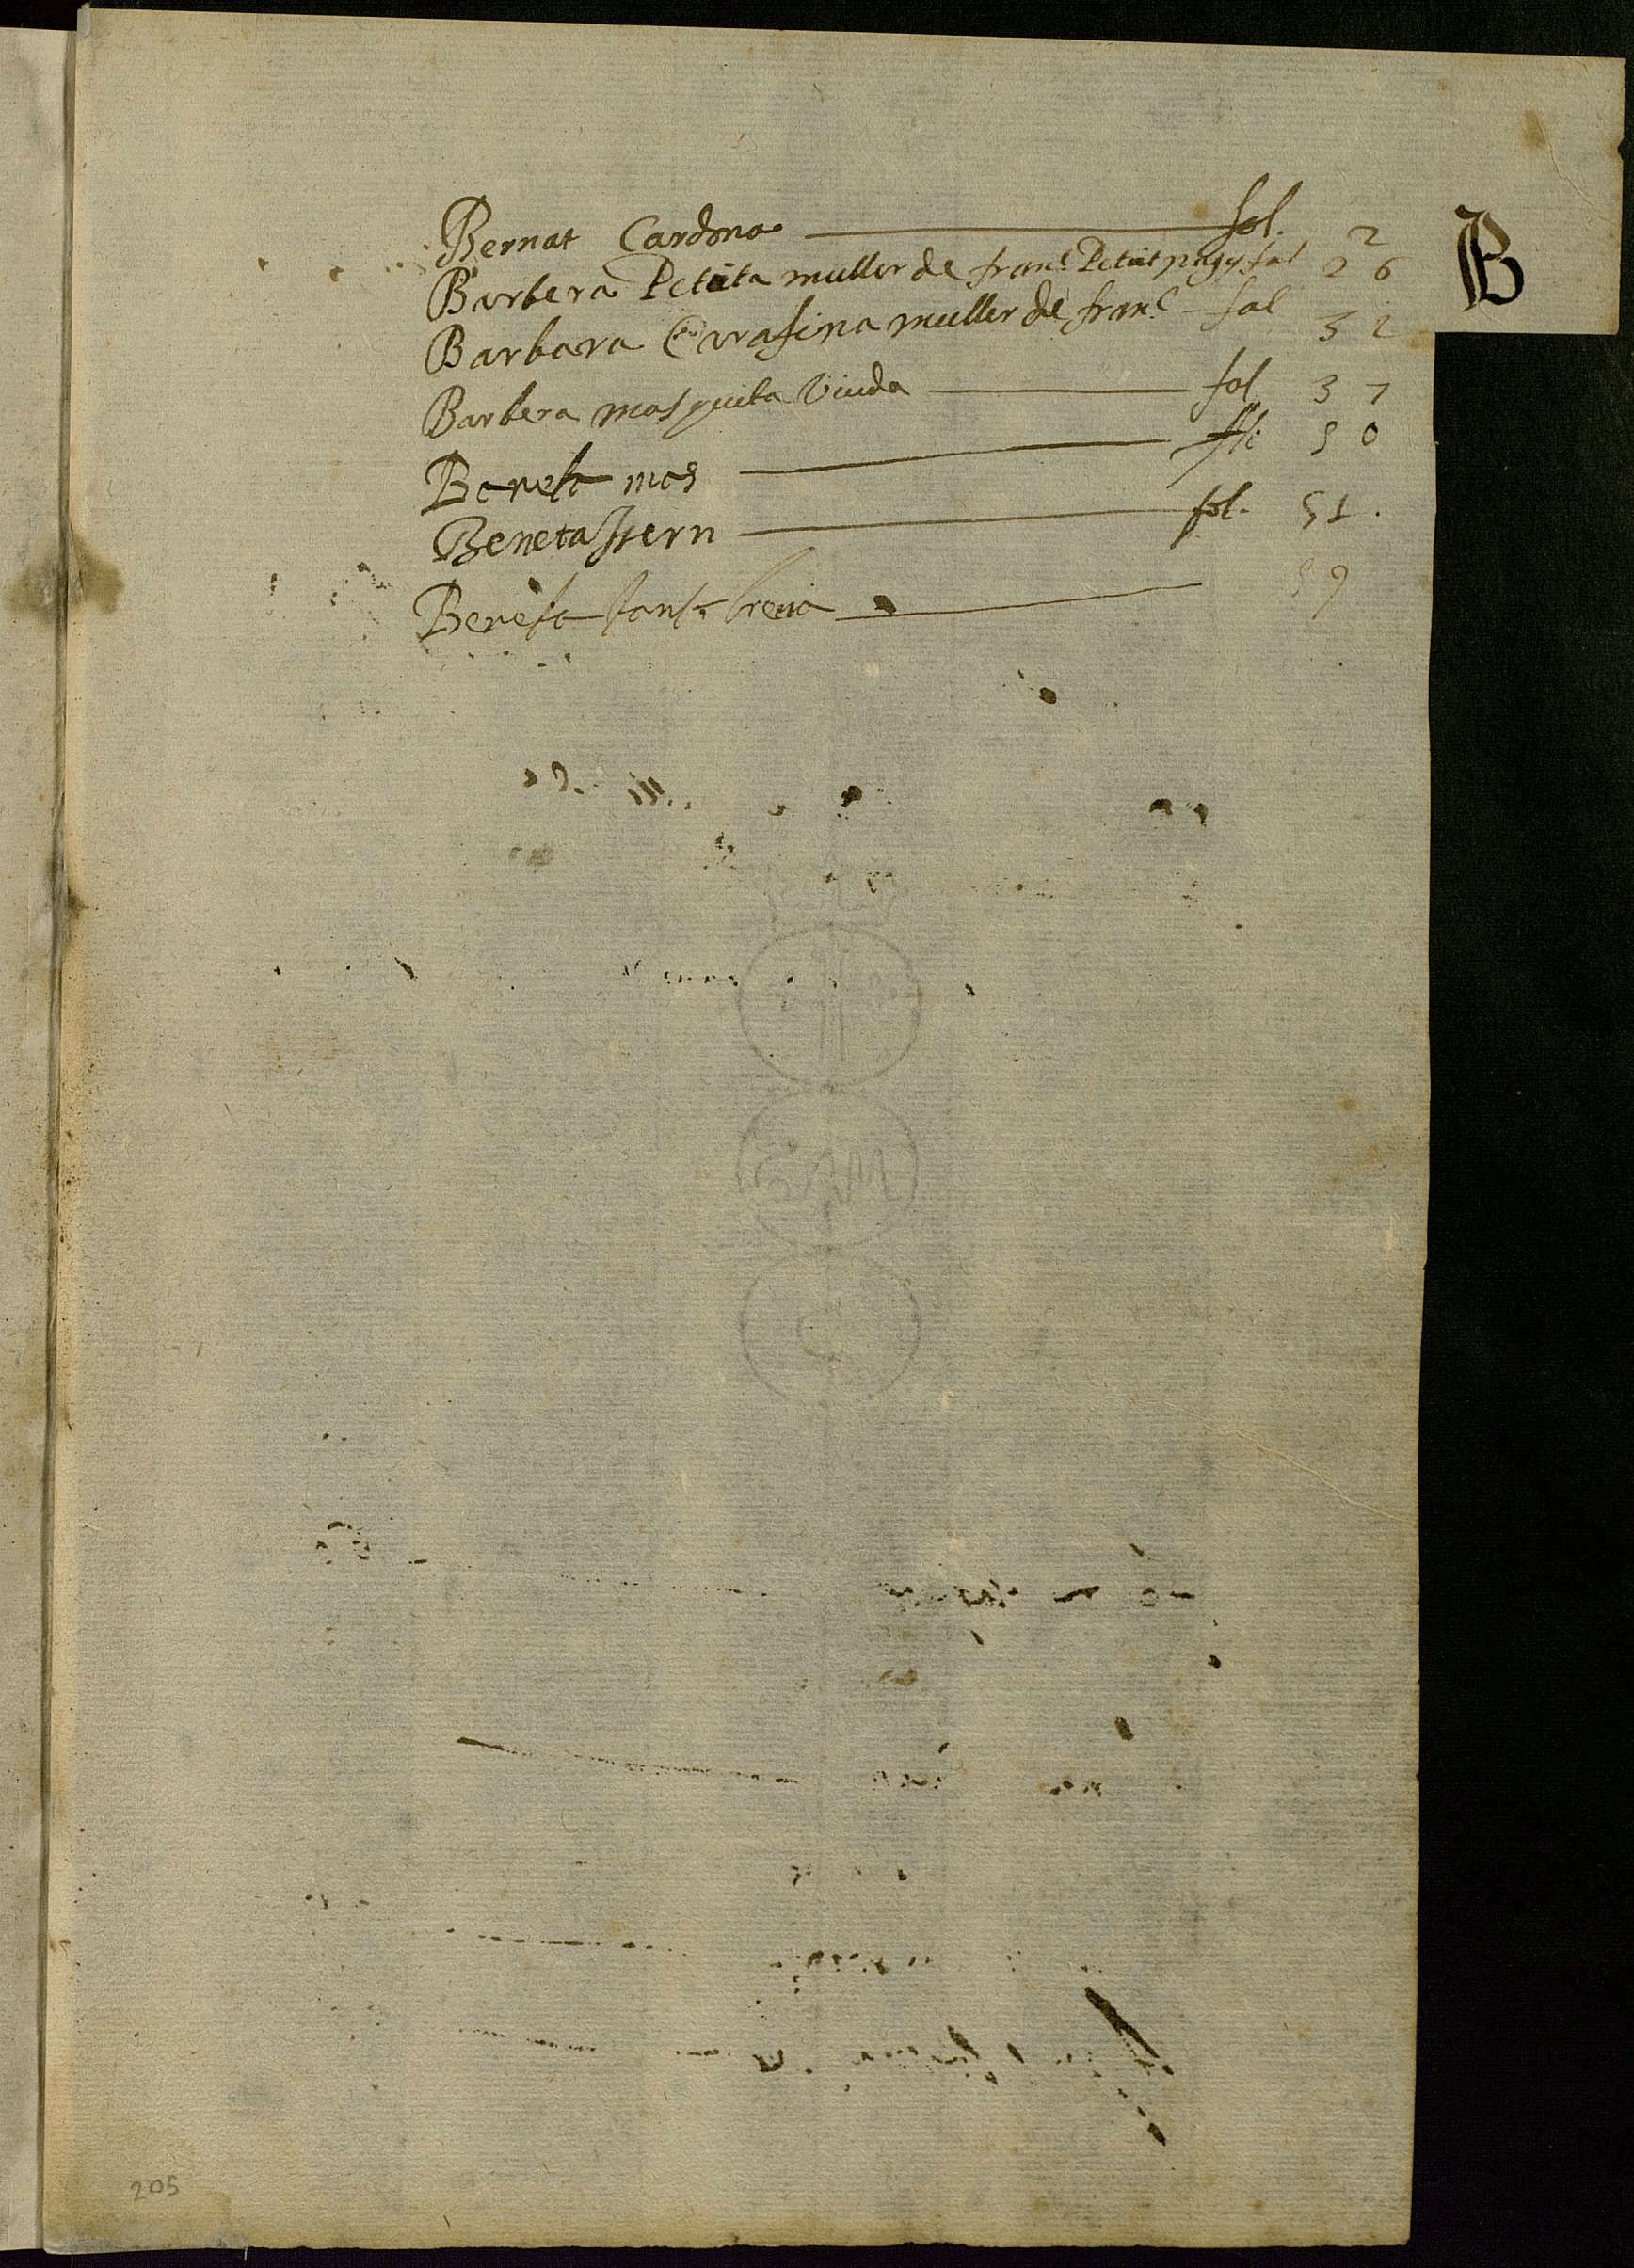 B
Bernat Cardona fol. 2
Barbera Petita muller de franc Petit pages fol 26
Barbara Carafina muller de franc fol 32
Barbera mosquita Viuda fol 37
Beneta mas fol. 50
Beneta Isern fol. 51.
Beneta 59
205